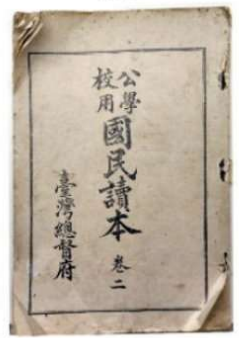 公學校用國民讀本 卷二
臺灣總督府